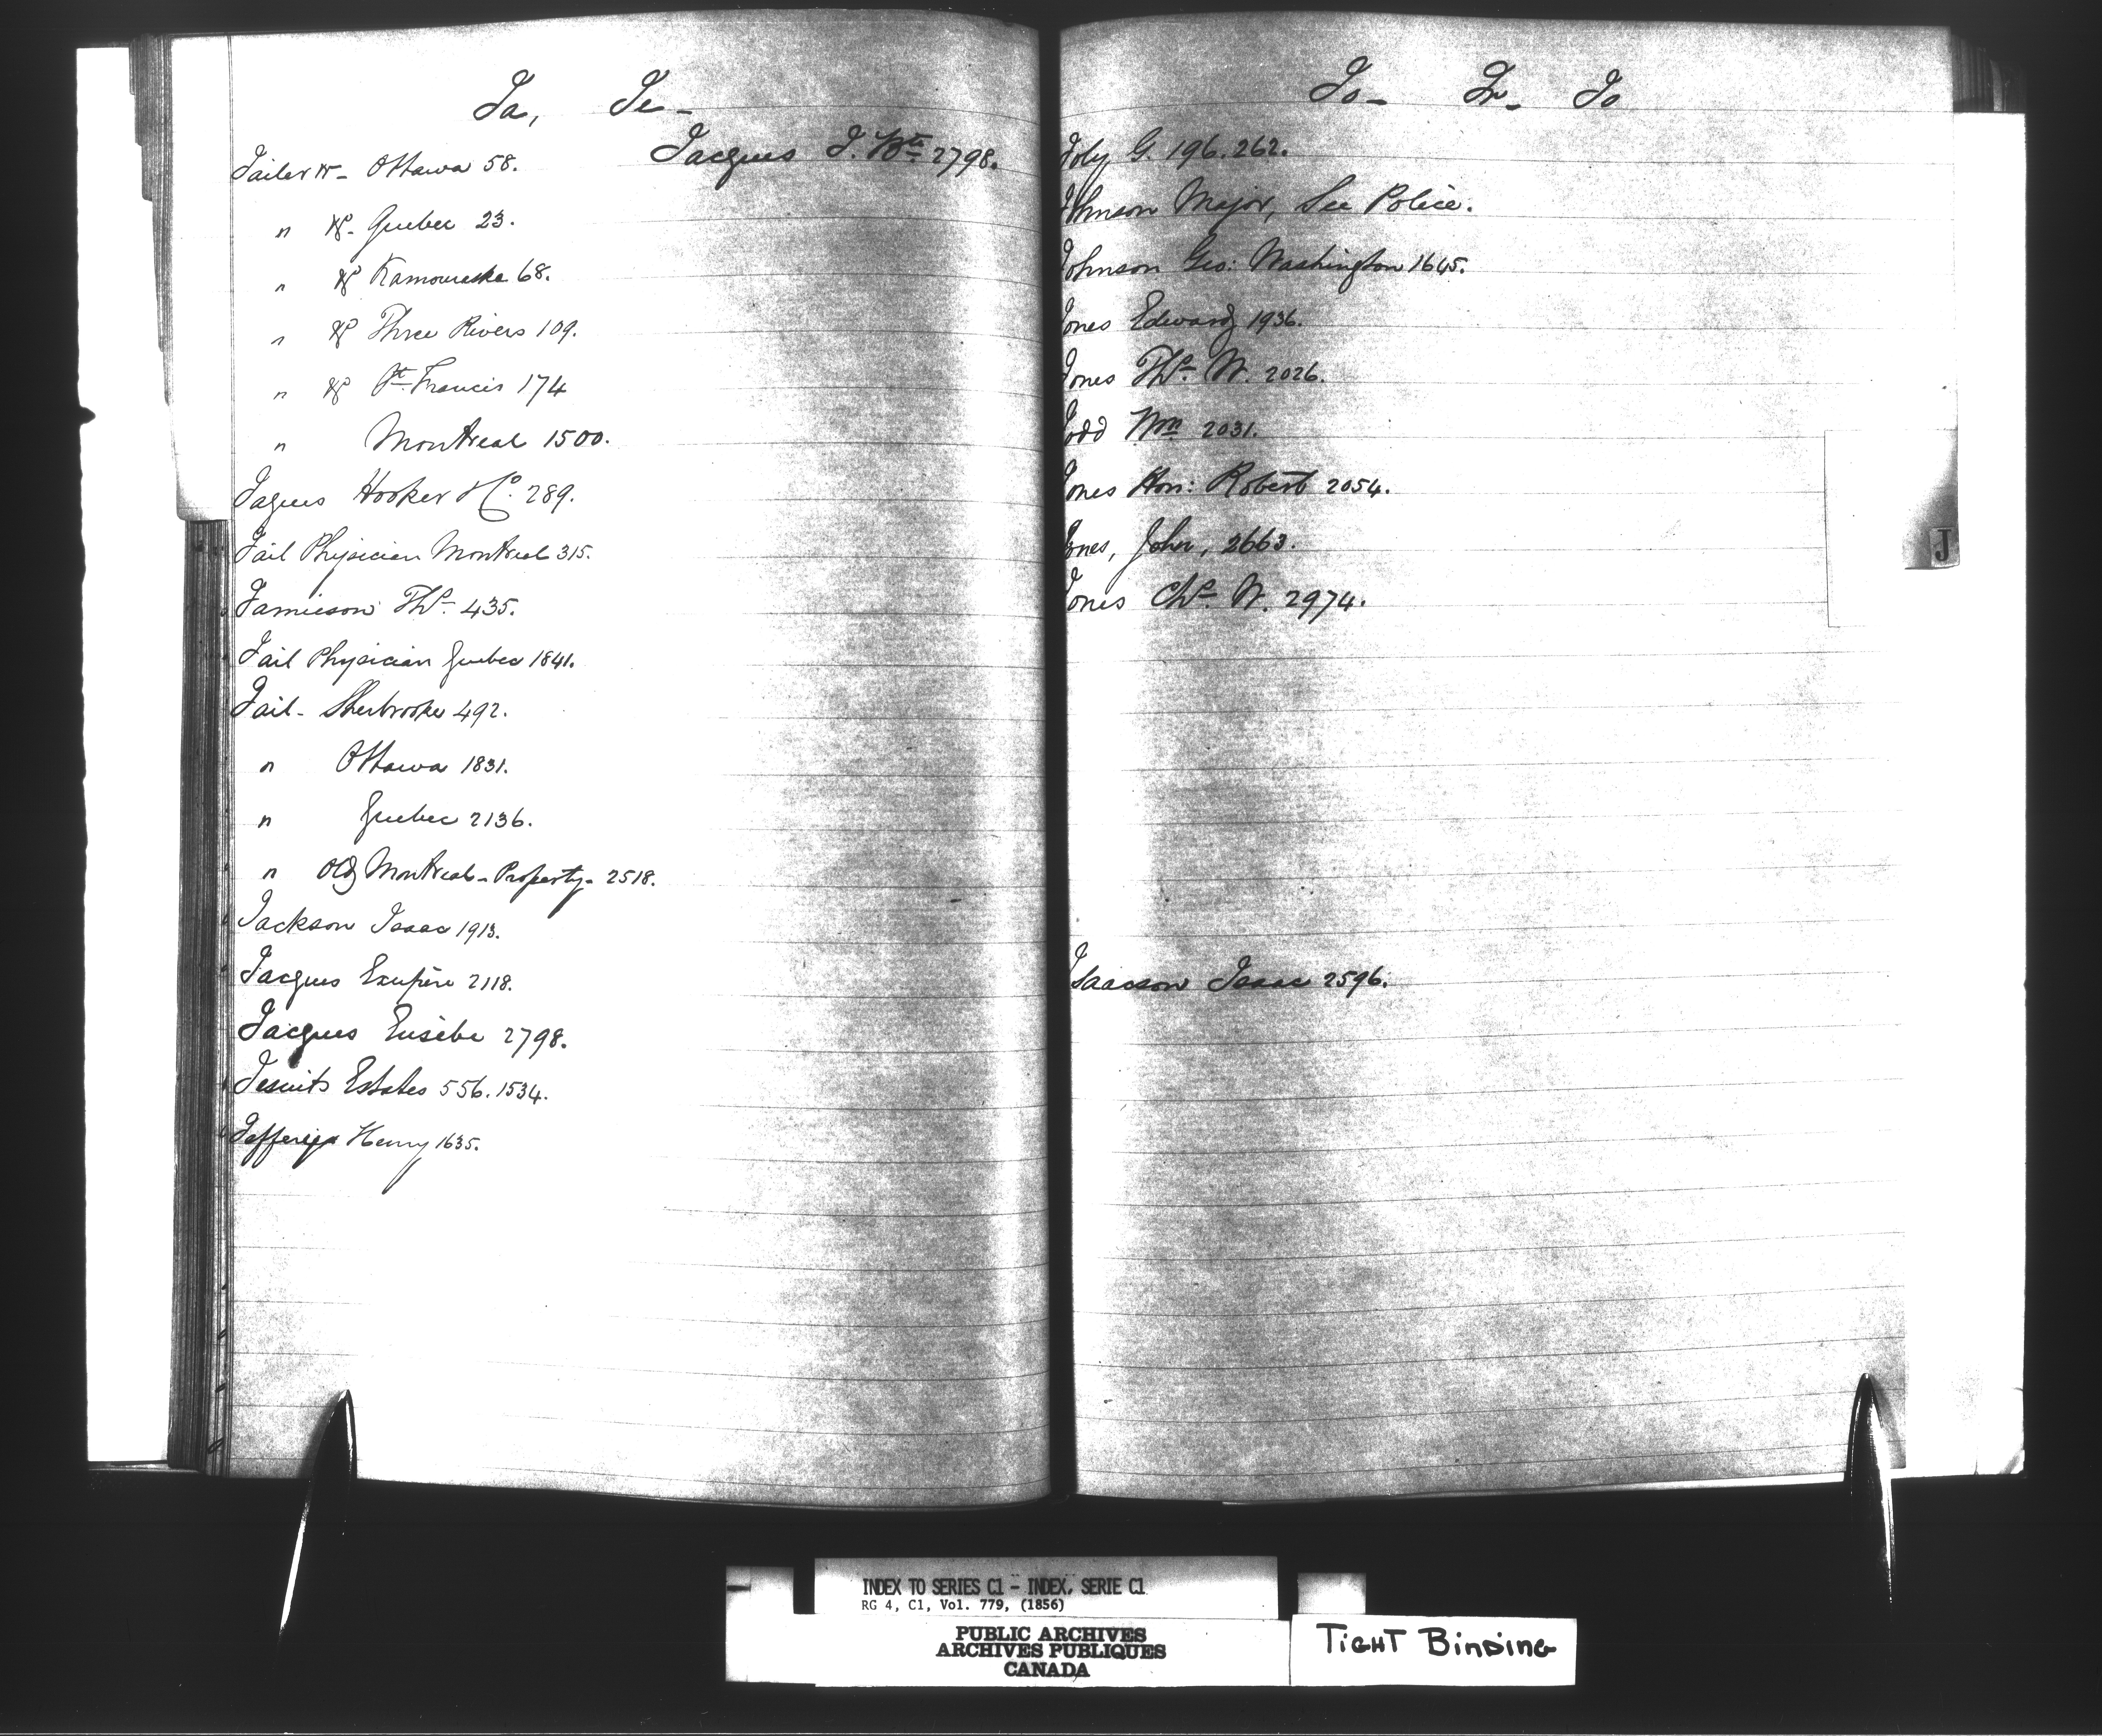 Ja, Je-
Jailer Ottawa 58.
Jacques J. Bte 2798.
" Quebec 23.
" Kamouraska 68.
" Three Rivers 109.
" St Francis 174
" Montreal 1500.
Jaques Hooker 289.
Jail Physician Montreal 315.
Jamieson Ths. 435.
Jail Physician Quebec 1841.
Jail - Sherbrooke 492.
" Ottawa 1831.
" Quebec 2136.
" Old Montreal - Property - 2518.
Jackson Isaac 1913.
Jacques Exupère 2118.
Jacques Eusèbe 2798.
Jesuits Estates 556. 1534.
Henry 1635.
Jo-
Joly G. 196. 262.
Johnson Major, See Police.
Johnson Geo: Washington 1645.
Jones Edward 1936.
Jones Ths. W. 2026.
Wm 2031.
Jones Hon: Robert 2054.
Jones, John, 2663.
Jones Chs. W. 2974.
Isaacson Isaac 2596.
J
INDEX TO SERIES C1 - INDEX, SERIE C1
RG 4, C1, Vol. 779, (1856)
PUBLIC ARCHIVES
ARCHIVES PUBLIQUES
CANADA
TIGHT BINDING